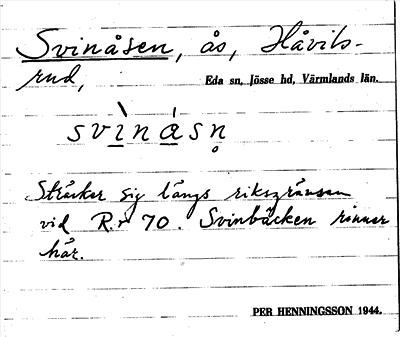 Svinåsen, ås, Håvils-
rud,
Eda sn, Jösse hd, Värmlands län.
svìnásn̥
Sträcker sig längs riksgränsen
vid R.r 70. Svinbäcken rinner
här.
PER HENNINGSSON 1944.